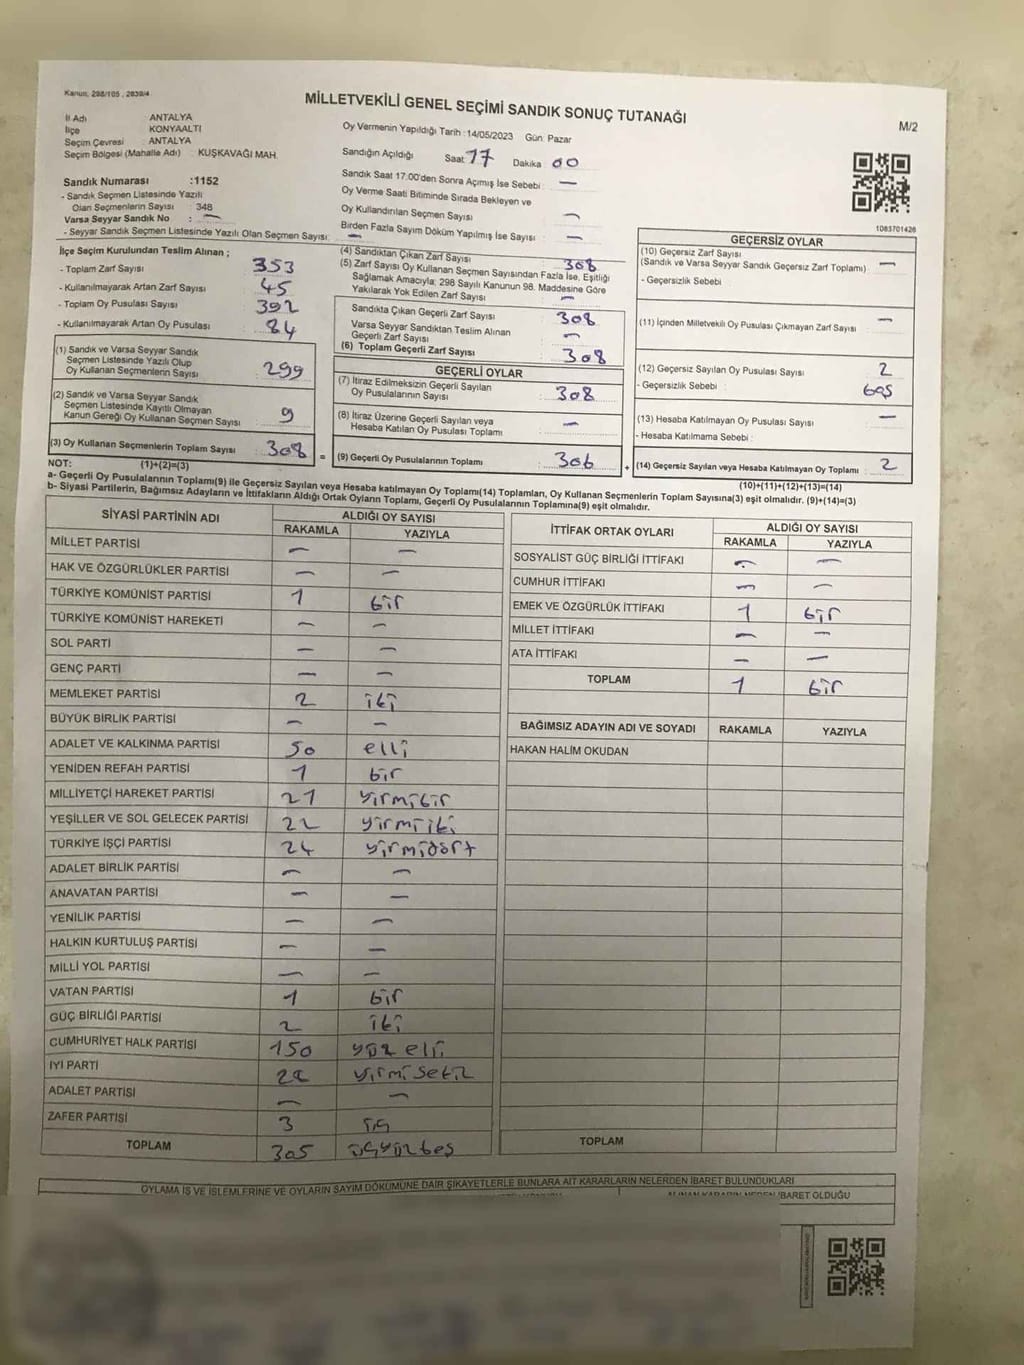 Kanun: 298/105 , 2839/4
MİLLETVEKİLİ GENEL SEÇİMİ SANDIK SONUÇ TUTANAĞI
M/2
İl Adı ANTALYA
İlçe KONYAALTI
Seçim Çevresi ANTALYA
Seçim Bölgesi (Mahalle Adı) : KUŞKAVAĞI MAH.
Sandık Numarası :1152
- Sandık Seçmen Listesinde Yazılı
Olan Seçmenlerin Sayısı : 348
Varsa Seyyar Sandık No : —
- Seyyar Sandık Seçmen Listesinde Yazılı Olan Seçmen Sayısı: —
Oy Vermenin Yapıldığı Tarih :14/05/2023 Gün: Pazar
Sandığın Açıldığı Saat 17 Dakika 00
Sandık Saat 17:00'den Sonra Açımış İse Sebebi : —
Oy Verme Saati Bitiminde Sırada Bekleyen ve
Oy Kullandırılan Seçmen Sayısı : —
Birden Fazla Sayım Döküm Yapılmış İse Sayısı : —
1083701426
İlçe Seçim Kurulundan Teslim Alınan ;
- Toplam Zarf Sayısı : 353
- Kullanılmayarak Artan Zarf Sayısı : 45
- Toplam Oy Pusulası Sayısı : 392
- Kullanılmayarak Artan Oy Pusulası : 84
(1) Sandık ve Varsa Seyyar Sandık
Seçmen Listesinde Yazılı Olup
Oy Kullanan Seçmenlerin Sayısı : 299
(2) Sandık ve Varsa Seyyar Sandık
Seçmen Listesinde Kayıtlı Olmayan
Kanun Gereği Oy Kullanan Seçmen Sayısı : 9
(3) Oy Kullanan Seçmenlerin Toplam Sayısı : 308 =
(1)+(2)=(3)
(4) Sandıktan Çıkan Zarf Sayısı : 308
(5) Zarf Sayısı Oy Kullanan Seçmen Sayısından Fazla İse, Eşitliği
Sağlamak Amacıyla; 298 Sayılı Kanunun 98. Maddesine Göre
Yakılarak Yok Edilen Zarf Sayısı : —
Sandıkta Çıkan Geçerli Zarf Sayısı : 308
Varsa Seyyar Sandıktan Teslim Alınan
Geçerli Zarf Sayısı : —
(6) Toplam Geçerli Zarf Sayısı : 308
GEÇERLİ OYLAR
(7) İtiraz Edilmeksizin Geçerli Sayılan
Oy Pusulalarının Sayısı : 308
(8) İtiraz Üzerine Geçerli Sayılan veya
Hesaba Katılan Oy Pusulası Toplamı : —
(9) Geçerli Oy Pusulalarının Toplamı : 306 +
GEÇERSİZ OYLAR
(10) Geçersiz Zarf Sayısı
(Sandık ve Varsa Seyyar Sandık Geçersiz Zarf Toplamı) : —
- Geçersizlik Sebebi :
(11) İçinden Milletvekili Oy Pusulası Çıkmayan Zarf Sayısı : —
(12) Geçersiz Sayılan Oy Pusulası Sayısı : 2
- Geçersizlik Sebebi : boş
(13) Hesaba Katılmayan Oy Pusulası Sayısı : —
- Hesaba Katılmama Sebebi :
(14) Geçersiz Sayılan veya Hesaba Katılmayan Oy Toplamı : 2
(10)+(11)+(12)+(13)=(14)
NOT:
a- Geçerli Oy Pusulalarının Toplamı(9) ile Geçersiz Sayılan veya Hesaba katılmayan Oy Toplamı(14) Toplamları, Oy Kullanan Seçmenlerin Toplam Sayısına(3) eşit olmalıdır. (9)+(14)=(3)
b- Siyasi Partilerin, Bağımsız Adayların ve İttifakların Aldığı Ortak Oyların Toplamı, Geçerli Oy Pusulalarının Toplamına(9) eşit olmalıdır.
SİYASİ PARTİNİN ADI ALDIĞI OY SAYISI
RAKAMLA YAZIYLA
MİLLET PARTİSİ — —
HAK VE ÖZGÜRLÜKLER PARTİSİ — —
TÜRKİYE KOMÜNİST PARTİSİ 1 bir
TÜRKİYE KOMÜNİST HAREKETİ — —
SOL PARTİ — —
GENÇ PARTİ — —
MEMLEKET PARTİSİ 2 iki
BÜYÜK BİRLİK PARTİSİ — —
ADALET VE KALKINMA PARTİSİ 50 elli
YENİDEN REFAH PARTİSİ 1 bir
MİLLİYETÇİ HAREKET PARTİSİ 21 yirmibir
YEŞİLLER VE SOL GELECEK PARTİSİ 22 yirmiiki
TÜRKİYE İŞÇİ PARTİSİ 24 yirmidört
ADALET BİRLİK PARTİSİ — —
ANAVATAN PARTİSİ — —
YENİLİK PARTİSİ — —
HALKIN KURTULUŞ PARTİSİ — —
MİLLİ YOL PARTİSİ — —
VATAN PARTİSİ 1 bir
GÜÇ BİRLİĞİ PARTİSİ 2 iki
CUMHURİYET HALK PARTİSİ 150 yüz elli
İYİ PARTİ 28 yirmi sekiz
ADALET PARTİSİ — —
ZAFER PARTİSİ 3 üç
TOPLAM 305 üçyüzbeş
İTTİFAK ORTAK OYLARI ALDIĞI OY SAYISI
RAKAMLA YAZIYLA
SOSYALİST GÜÇ BİRLİĞİ İTTİFAKI — —
CUMHUR İTTİFAKI — —
EMEK VE ÖZGÜRLÜK İTTİFAKI 1 bir
MİLLET İTTİFAKI — —
ATA İTTİFAKI — —
TOPLAM 1 bir
BAĞIMSIZ ADAYIN ADI VE SOYADI RAKAMLA YAZIYLA
HAKAN HALİM OKUDAN
TOPLAM
OYLAMA İŞ VE İŞLEMLERİNE VE OYLARIN SAYIM DÖKÜMÜNE DAİR ŞİKAYETLERLE BUNLARA AİT KARARLARIN NELERDEN İBARET BULUNDUKLARI
ALINAN KARARIN NEDEN İBARET OLDUĞU